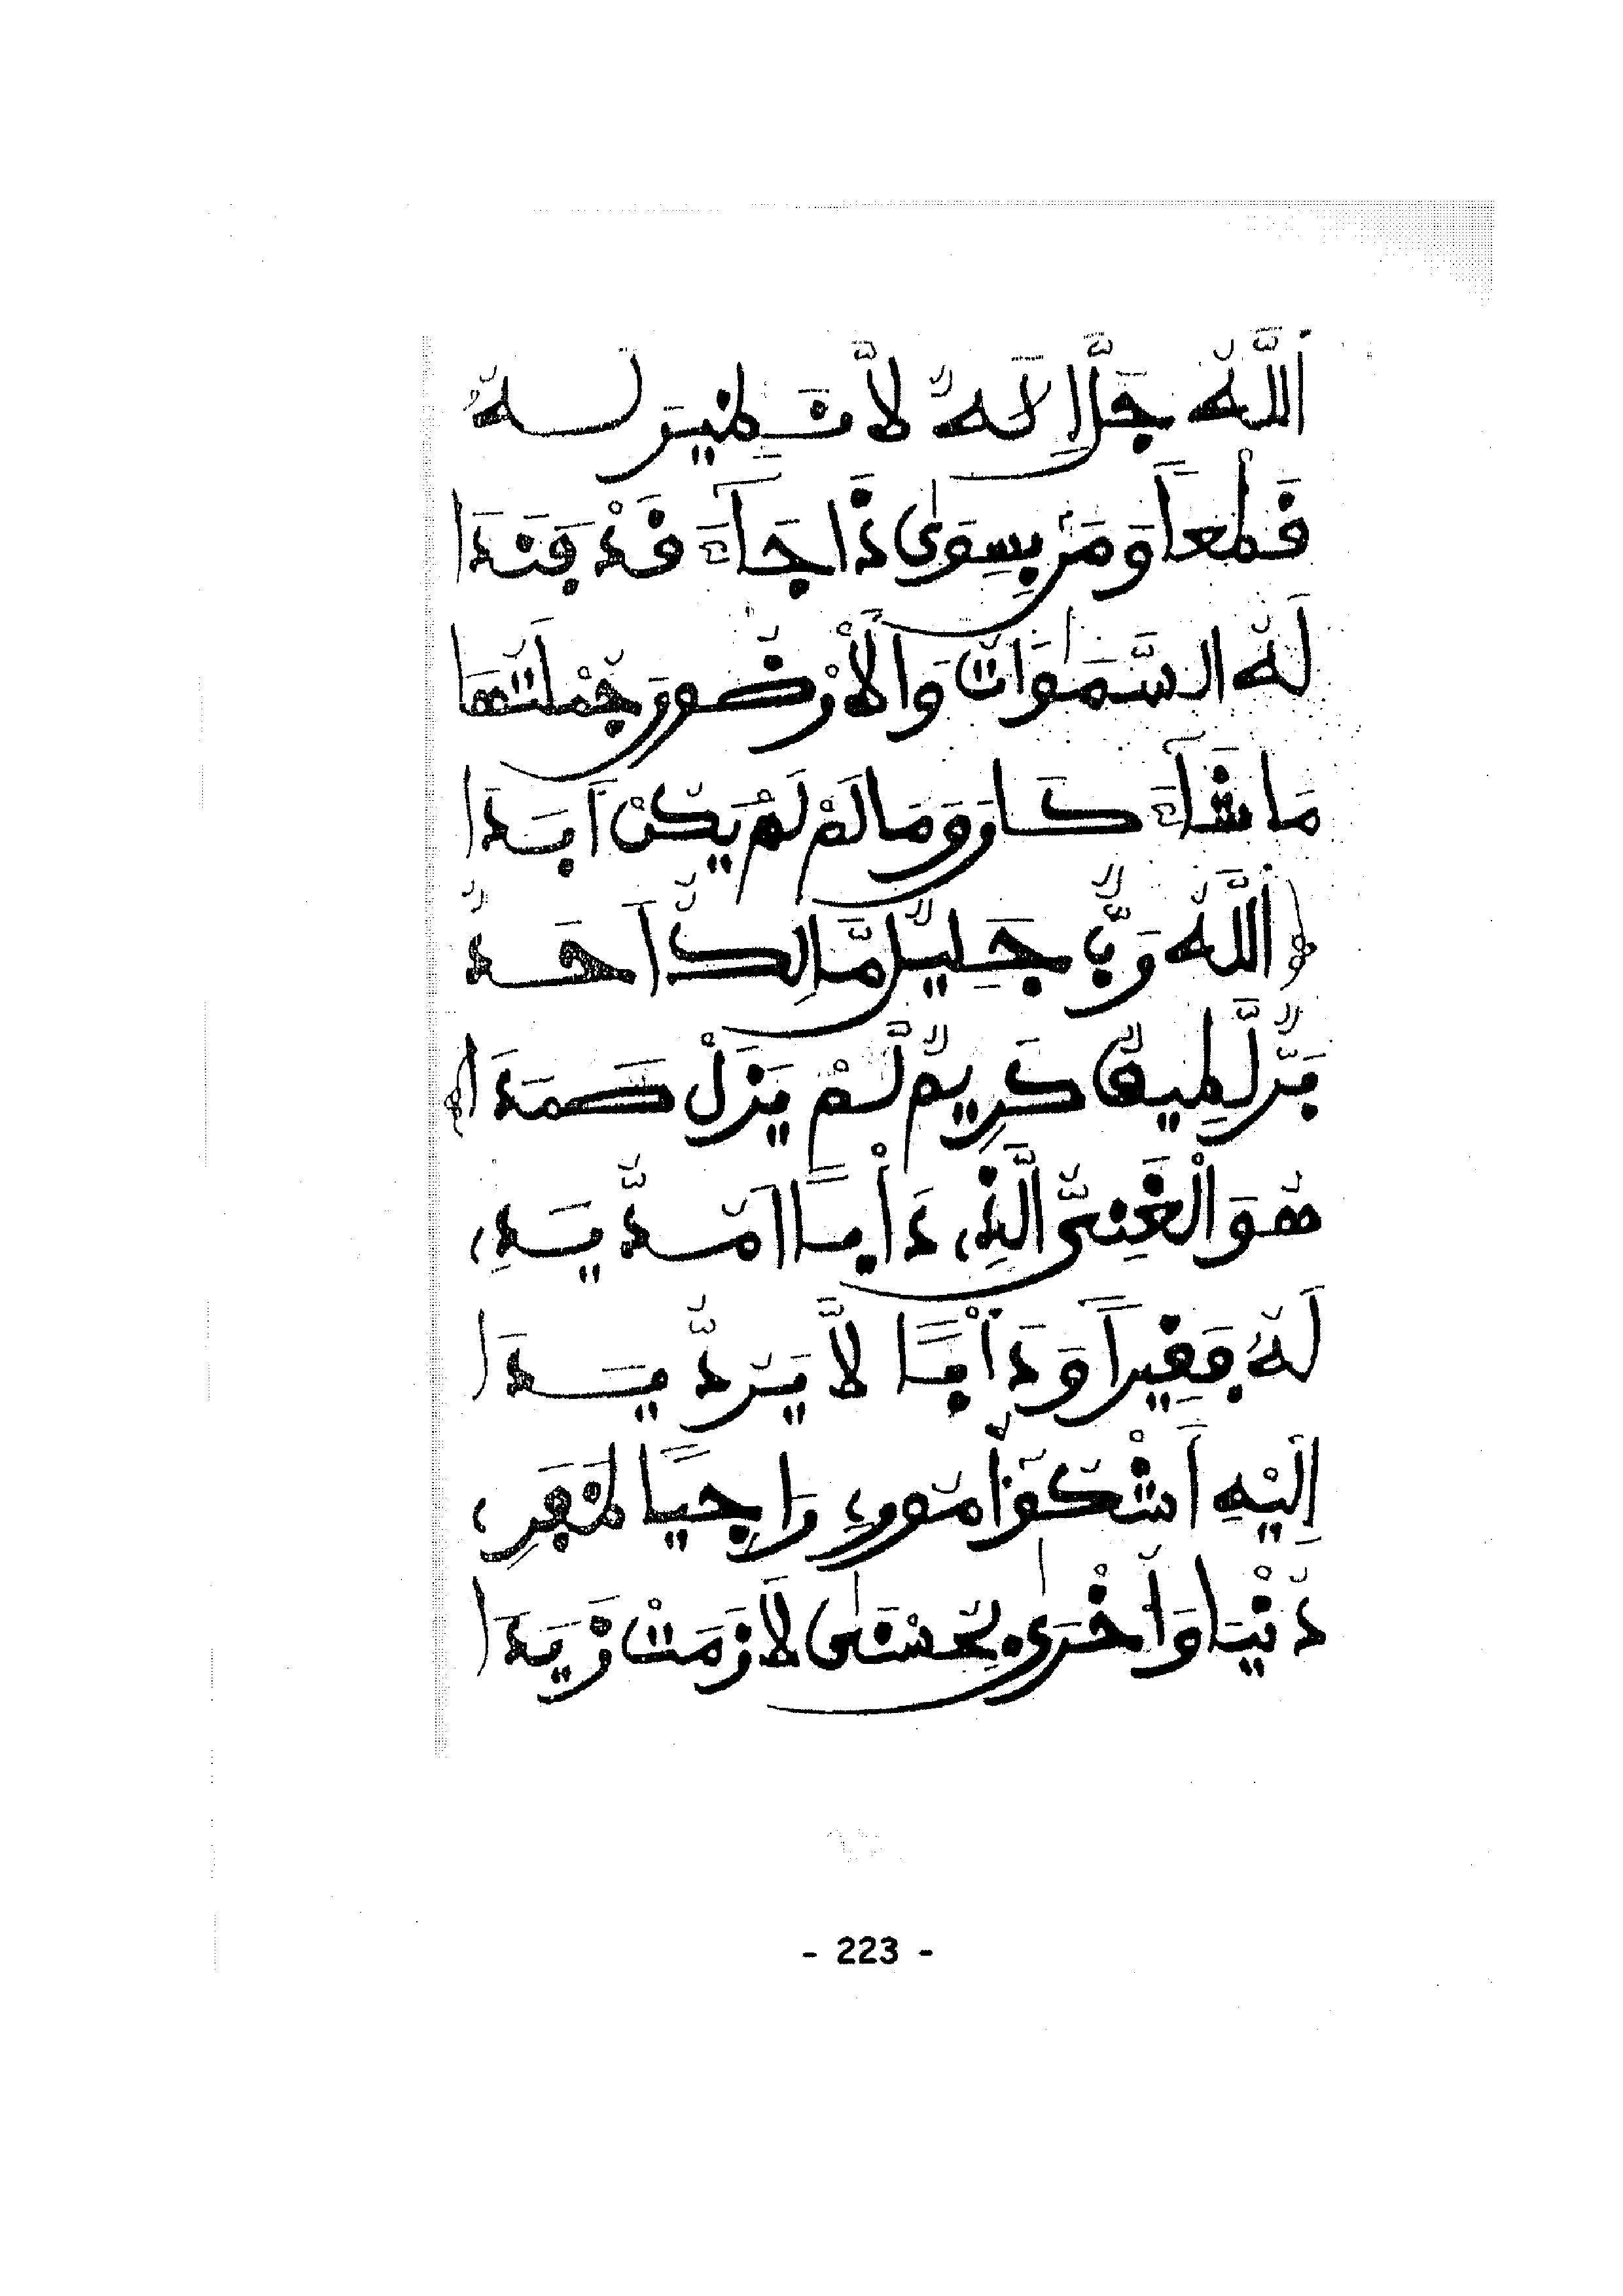 اَللَّهُ جَلَّ إِلَهٌ لَّا نَظِيرَ لَهُ
قَطْعاً وَمَن بِسِوَى ذَا جَاءَ قَدْ فَنَدَا
لَهُ السَّمَوَاتُ وَالْأَرْضُونَ جُمْلَتُهَا
مَا شَاءَ كَانَ وَمَا لَمْ لَمْ يَكُنْ أَبَدَا
اَللَّهُ رَبٌّ جَلِيلٌ مَّالِكٌ أَحَدٌ
بَرٌّ لَّطِيفٌ كَرِيمٌ لَّمْ يَزَلْ صَمَدَا
هُوَ الْغَنِيُّ الَّذِي دَأْباً أَمُدُّ يَدِي
لَهُ فَقِيراً وَدَأْباً لَّا يَرُدُّ يَدَا
إِلَيْهِ أَشْكُو أُمُورِي رَاجِياً ظَفَرِي
دُنْيَا وَأُخْرَى بِحُسْنَى لَازَمَتْ زَيَدَا
- 223 -